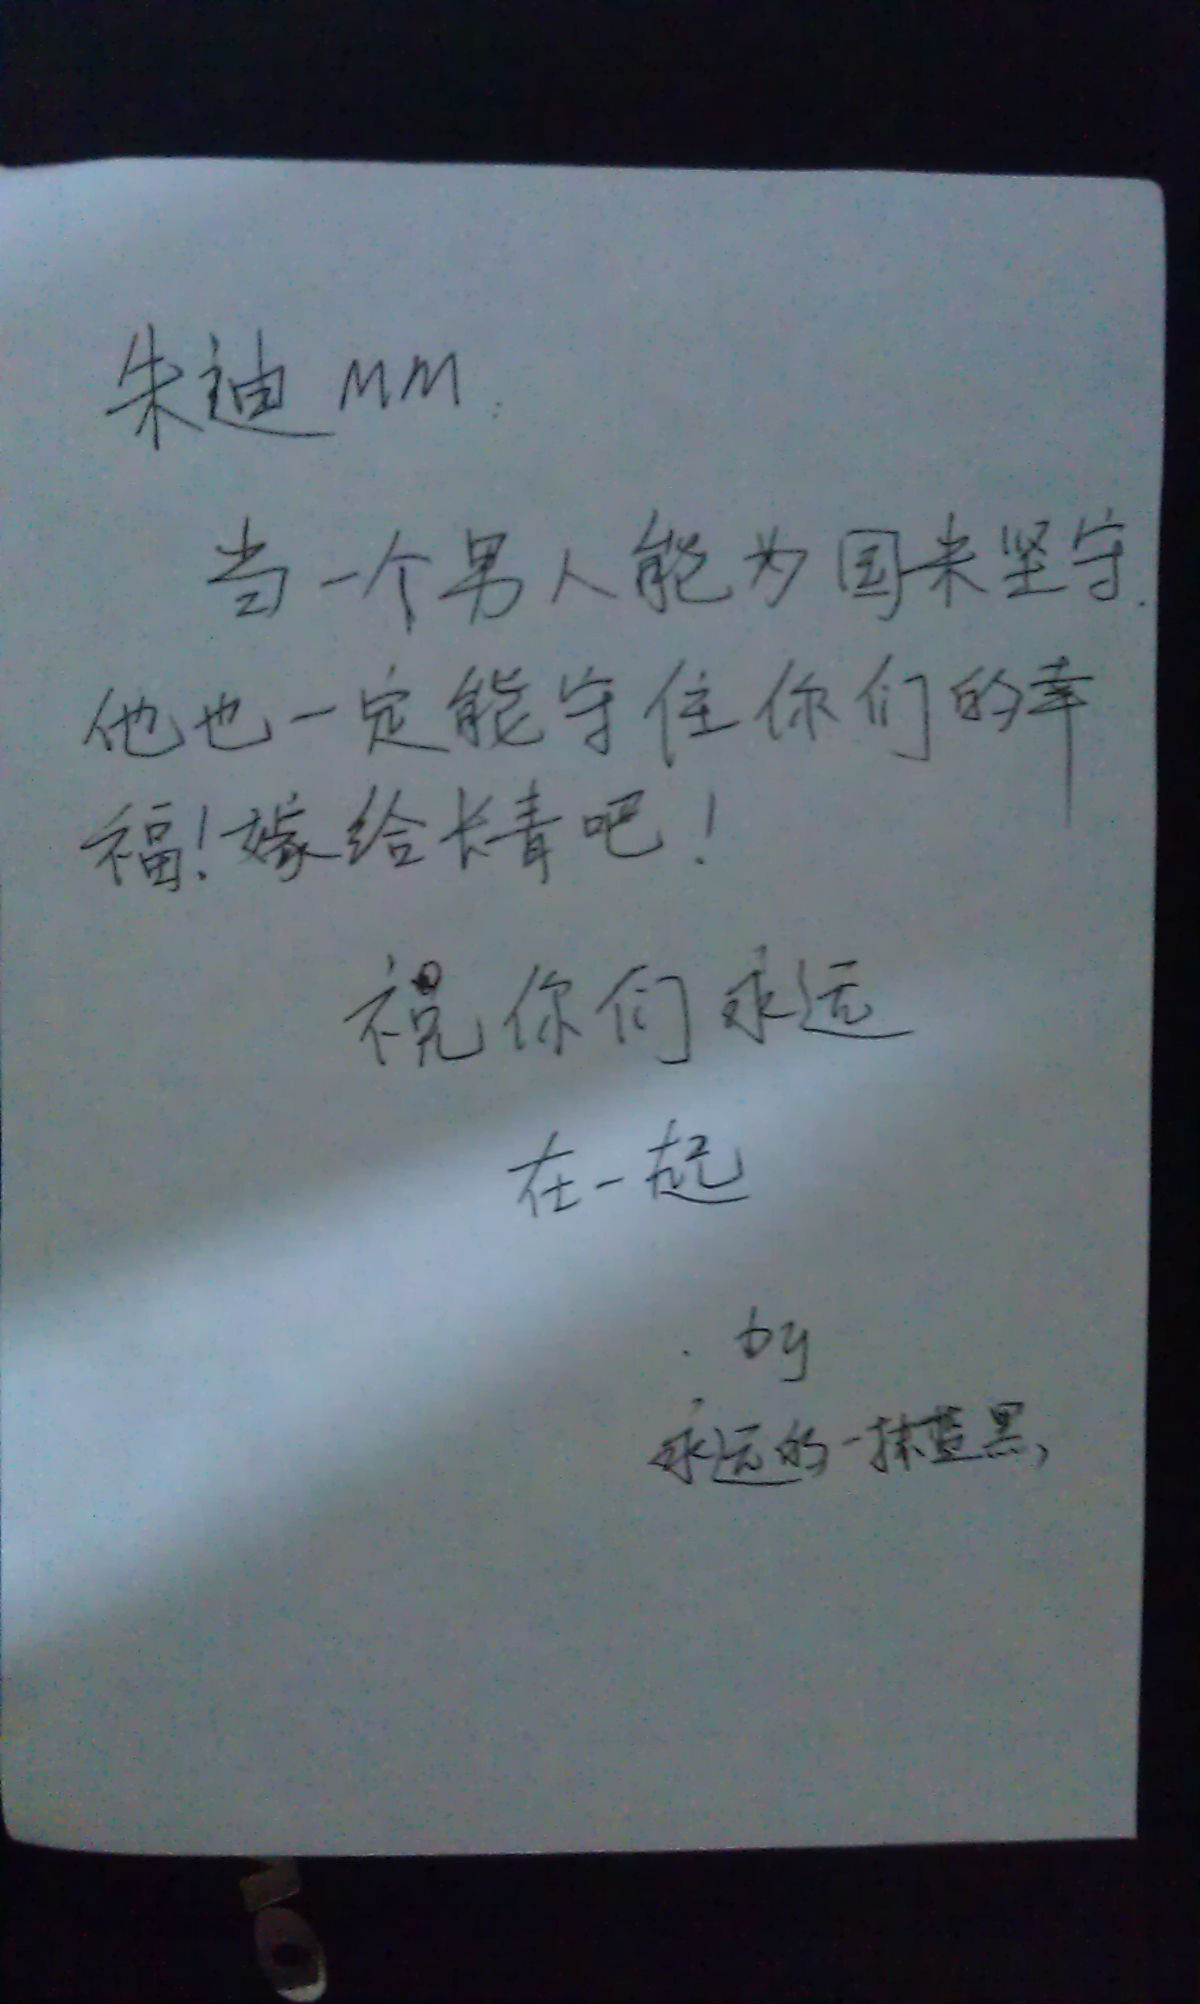 朱迪 MM.
当一个男人能为国米坚守.
他也一定能守住你们的幸
福!嫁给长青吧!
祝你们永远
在一起
by
永远的一抹蓝黑,